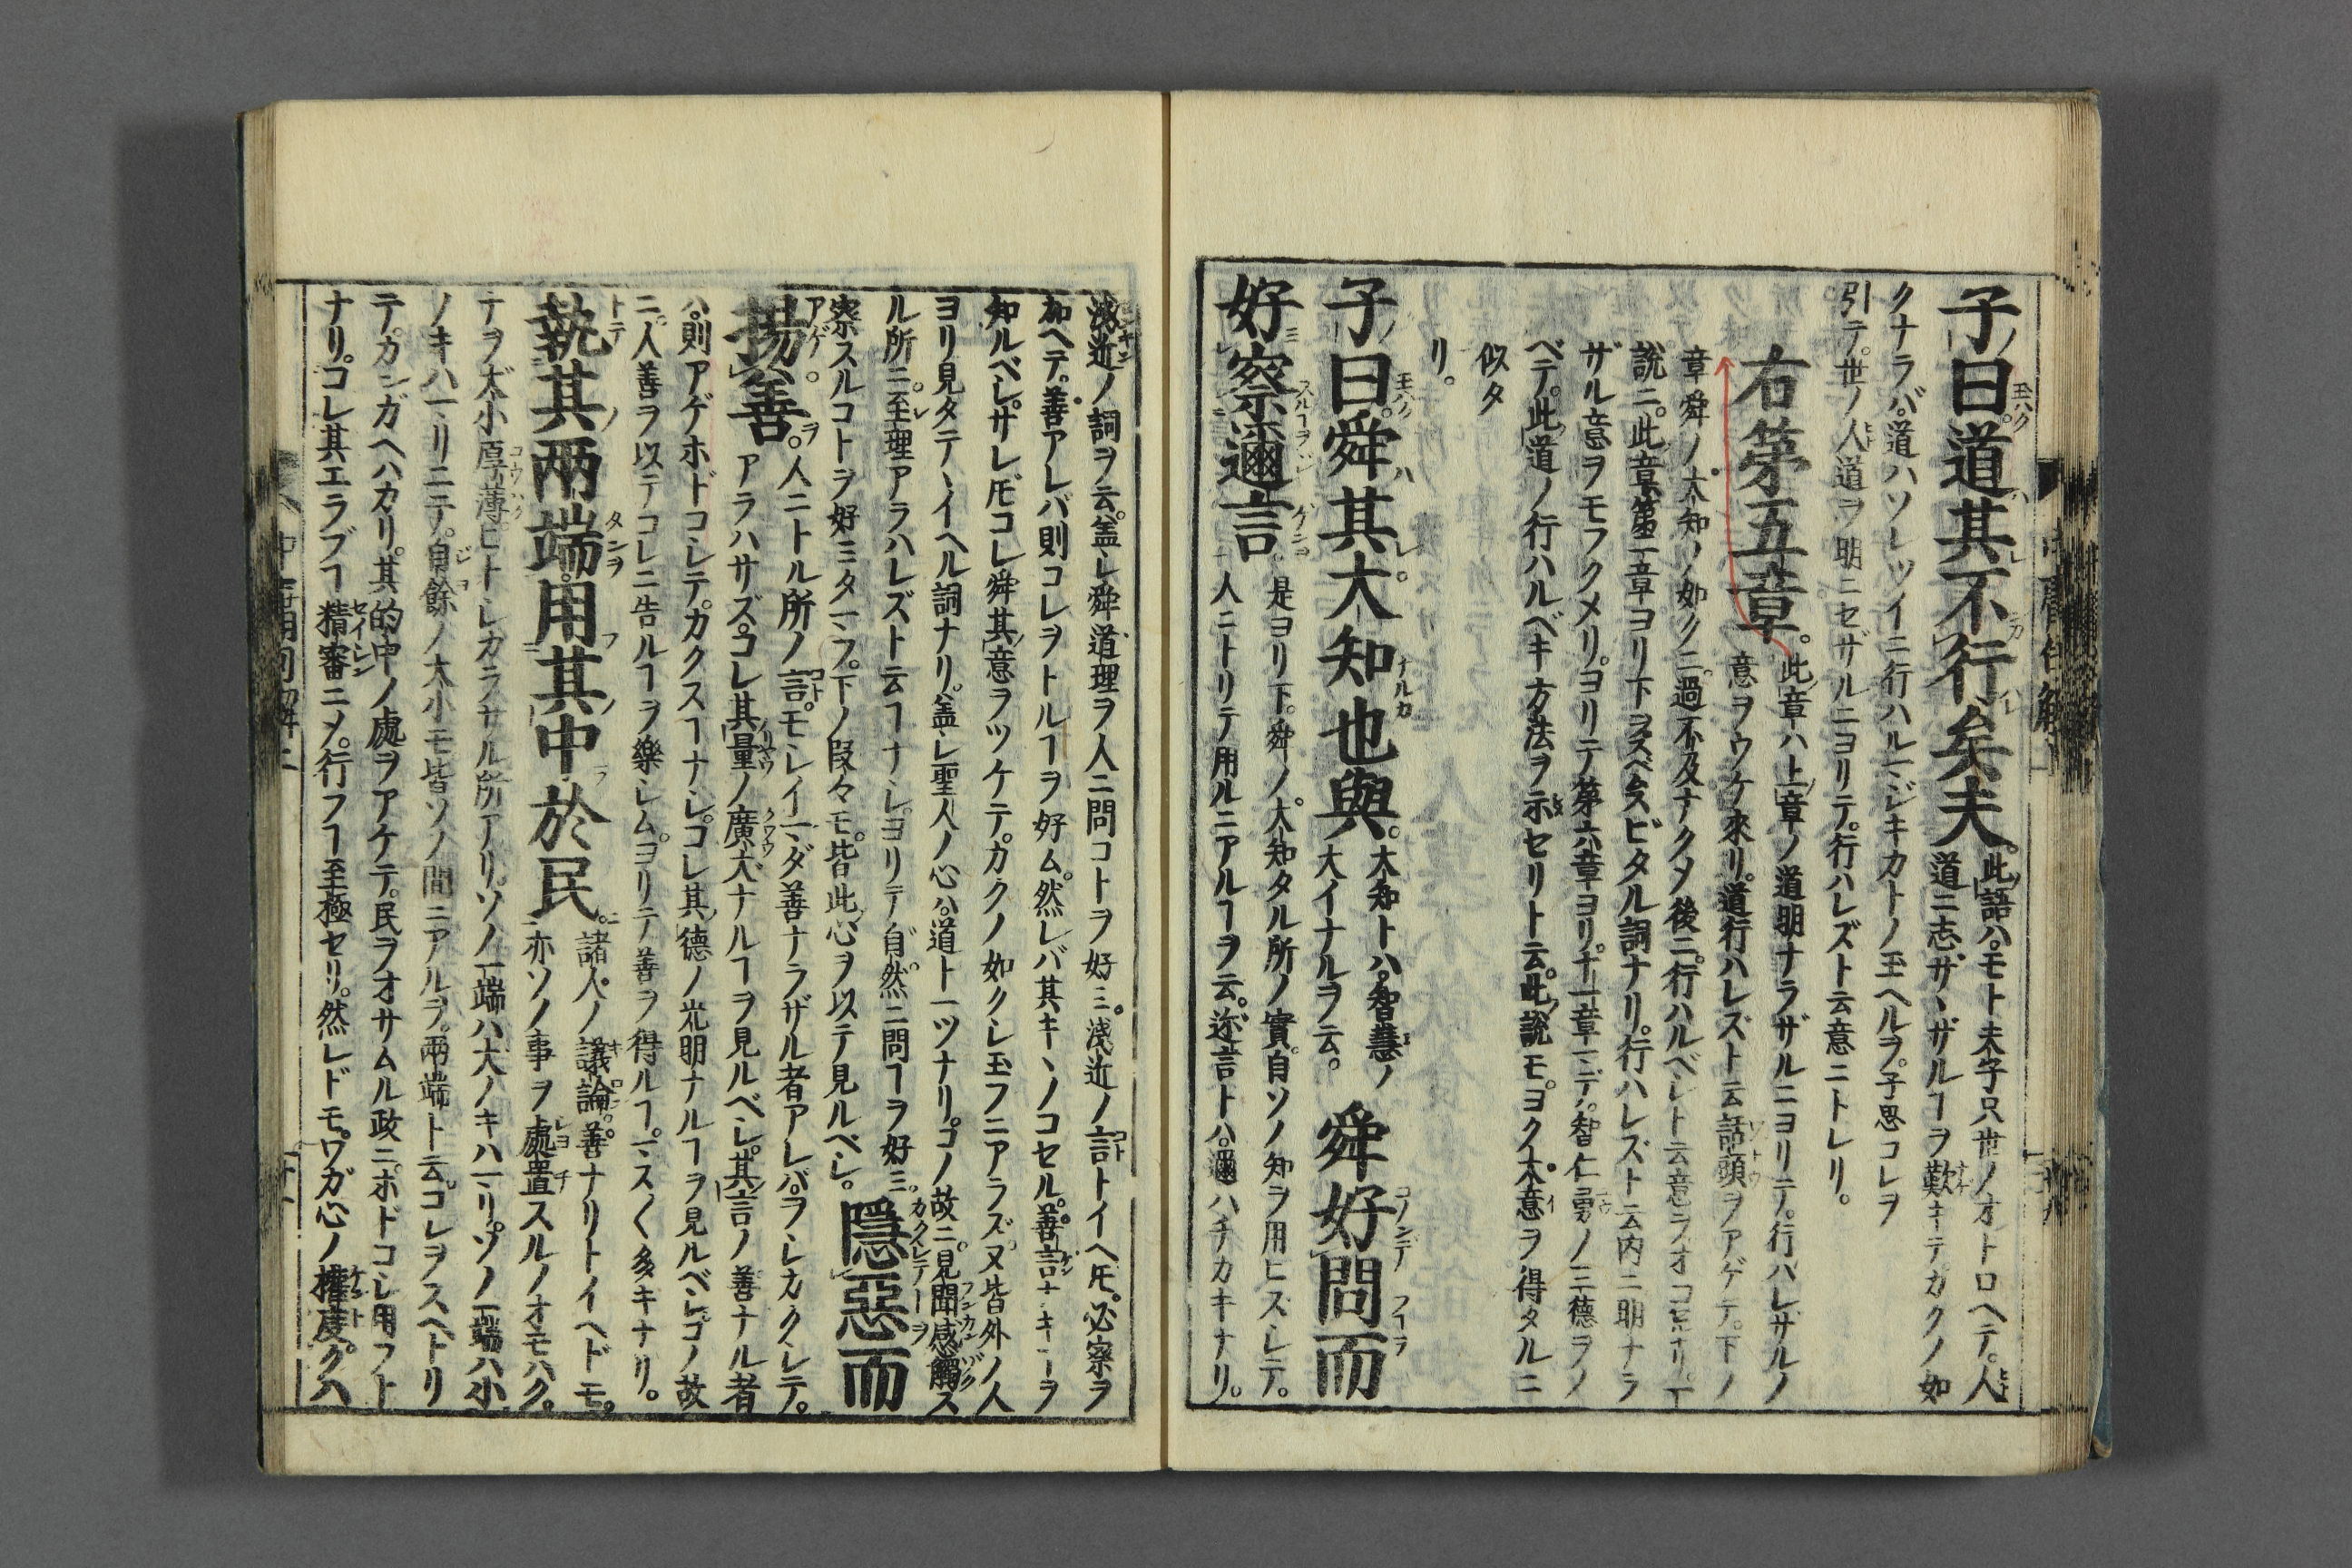 子曰道其不行矣夫。此語ハモト夫字只世ノオトロヘテ。人
道ニ志ザヽザルヿヲ歎キテカクノ如
クナラバ。道ハソレツイニ行ハルマジキカトノ玉ヘルヲ。子思コレヲ
引テ。世ノ人道ヲ明ニセザルニヨリテ。行ハレズト云意ニトレリ。
右第五章。此章ハ上章ノ道明ナラザルニヨリテ。行ハレザルノ
意ヲウケ來リ。道行ハレズト云話頭ヲアゲテ。下ノ
章舜ノ大知ノ如クニ。過不及ナクメ後ニ。行ハルベシト云意ヲオコセリ。
說ニ。此章第一章ヨリ下ヲスベムスビタル詞ナリ。行ハレズト云内ニ明ナラ
ザル意ヲモフクメリ。ヨリテ第六章ヨリ。十一章マデ。智仁勇ノ三德ヲノ
ベテ。此道ノ行ハルベキ方法ヲ示セリト云。此說モ。ヨク大意ヲ得タルニ
似タ
リ。
子曰舜其大知也與。大知トハ。智慧ノ
大イナルヲ云。舜好問而
好察邇言 是ヨリ下。舜ノ大知タル所ノ實。自ソノ知ヲ用ヒズレテ。
人ニトリテ用ルニアルヿヲ云。迩言トハ。邇ハチカキナリ。
淺近ノ詞ヲ云。盖シ舜道理ヲ人ニ問コトヲ好ミ。淺近ノ言トイヘ𪜈。必察ヲ
加ヘテ。善アレバ則コレヲトルヿヲ好ム。然レバ其キヽノコセル。善言ナキヿヲ
知ルベシ。サレ𪜈コレ舜其意ヲツケテ。カクノ如クシ玉フニアラズ。又皆外ノ人
ヨリ見タテヽイヘル詞ナリ。盖シ聖人ノ心ハ。道ト一ツナリ。コノ故ニ。見聞感觸ス
ル所ニ。至理アラハレズト云ヿナシ。ヨリテ自然ニ問ヿヲ好ミ。
察スルコトヲ好ミタマフ。下ノ段々モ。皆此心ヲ以テ見ルベシ。隱惡而
揚善。人ニトル所ノ言。モシイマダ善ナラザル者アレバ。ヲシカクレテ。
アラハサズ。コレ其量ノ廣大ナルヿヲ見ルベシ。其言ノ善ナル者
ハ。則アゲホドコシテ。カクスヿナシ。コレ其德ノ光明ナルヿヲ見ルベシ。コノ故
ニ。人善ヲ以テコレニ告ルヿヲ樂シム。ヨリテ善ヲ得ルヿ。マスく多キナリ。
執其兩端用其中於民。諸人ノ議論。善ナリトイヘドモ。
亦ソノ事ヲ處置スルノオモハク。
テヲ大小厚薄ヒトシカラサル所アリ。ソノ一端ハ大ノキハマリ。ソノ一端ハ小
ノキハマリニテ。自餘ノ大小モ皆ソノ間ニアルヲ。兩端ト云。コレヲスベトリ
テ。カンガヘハカリ。其的中ノ處ヲアケテ。民ヲオサムル政ニ。ホドコシ用フト
ナリ。コレ其エラブヿ精審ニメ。行フヿ至極セリ。然レドモ。ワガ心ノ權度。クハ